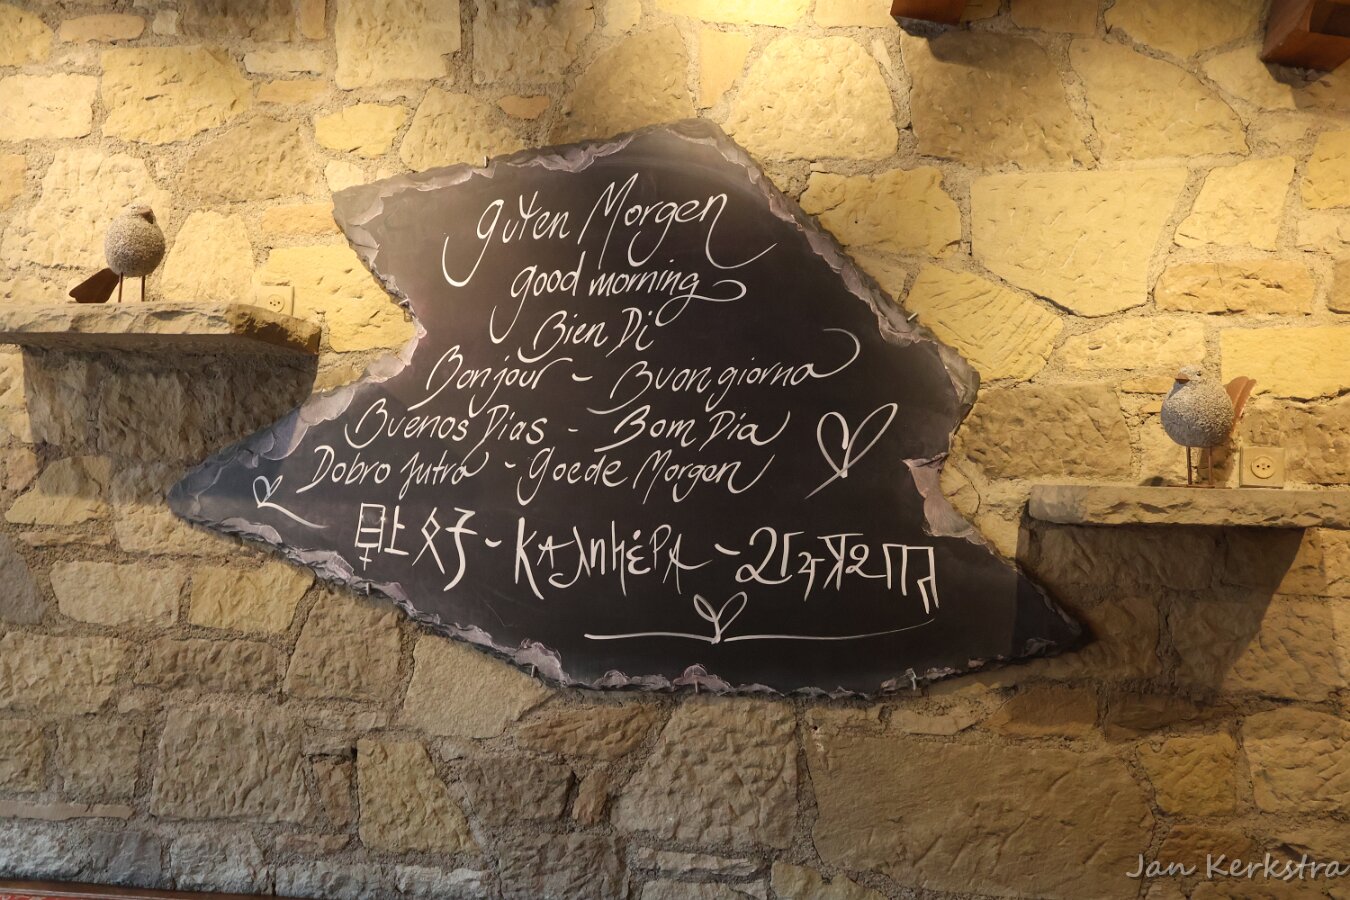 guten Morgen
good morning
Bien Di
Bonjour - Buongiorna
Buenos Dias - Bom Dia
Dobro Jutra - goede Morgen
早上 父子 - ΚΑΛΗΜΈΡΑ -
Jan Kerkstra